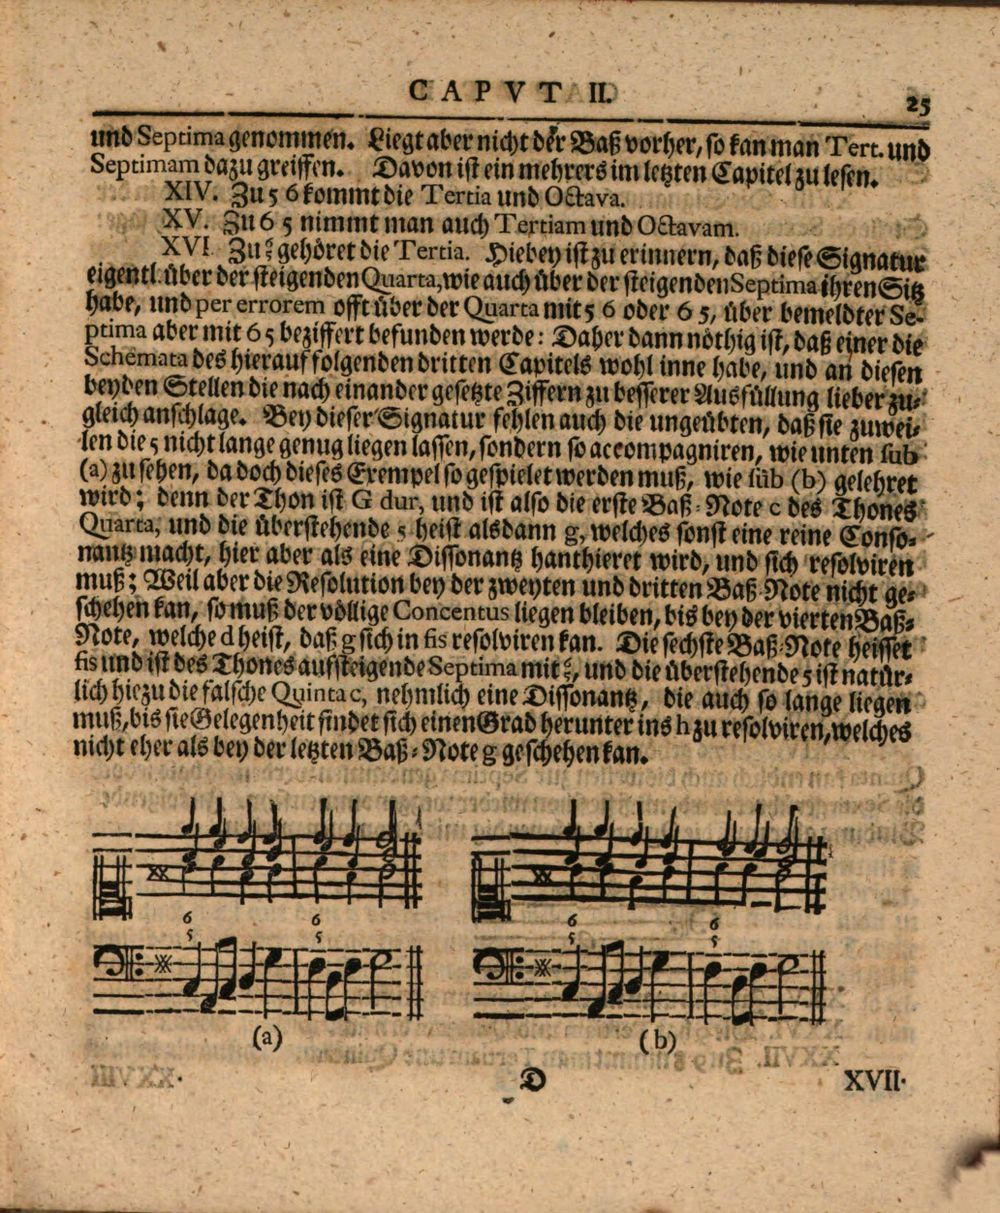 CAPVT II.
25
und Septima genommen. Liegt aber nicht der Baß vorher, so kan man Tert. und
Septimam dazu greiffen. Davon ist ein mehrers im letzten Capitel zu lesen.
XIV. Zu 5 6 kommt die Tertia und Octava.
XV. Zu 6 5 nimmt man auch Tertiam und Octavam.
XVI. Zu 6/5 gehöret die Tertia. Hiebey ist zu erinnern, daß diese Signatur
eigentl. über der steigenden Quarta, wie auch über der steigenden Septima ihren Sitz
habe, und per errorem offt über der Quarta mit 5 6 oder 6 5, über bemeldter Se-
ptima aber mit 6 5 beziffert befunden werde: Daher dann nöthig ist, daß einer die
Schemata des hierauf folgenden dritten Capitels wohl inne habe, und an diesen
beyden Stellen die nach einander gesetzte Ziffern zu besserer Ausfüllung lieber zu-
gleich anschlage. Bey dieser Signatur fehlen auch die ungeübten, daß sie zuwei-
len die 5 nicht lange genug liegen lassen, sondern so accompagniren, wie unten sub
(a) zu sehen, da doch dieses Exempel so gespielet werden muß, wie sub (b) gelehret
wird; denn der Thon ist G dur, und ist also die erste Baß-Note c des Thones
Quarta, und die überstehende 5 heist alsdann g, welches sonst eine reine Conso-
nantz macht, hier aber als eine Dissonantz hanthieret wird, und sich resolviren
muß; Weil aber die Resolution bey der zweyten und dritten Baß-Note nicht ge-
schehen kan, so muß der völlige Concentus liegen bleiben, bis bey der vierten Baß-
Note, welche d heist, daß g sich in fis resolviren kan. Die sechste Baß-Note heisset
fis und ist des Thones aufsteigende Septima mit 6/5, und die überstehende 5 ist natür-
lich hiezu die falsche Quinta c, nehmlich eine Dissonantz, die auch so lange liegen
muß, bis sie Gelegenheit findet sich einen Grad herunter ins h zu resolviren, welches
nicht eher als bey der letzten Baß-Note g geschehen kan.
6 6 6 6
5 5 5 5
(a) (b)
D XVII.